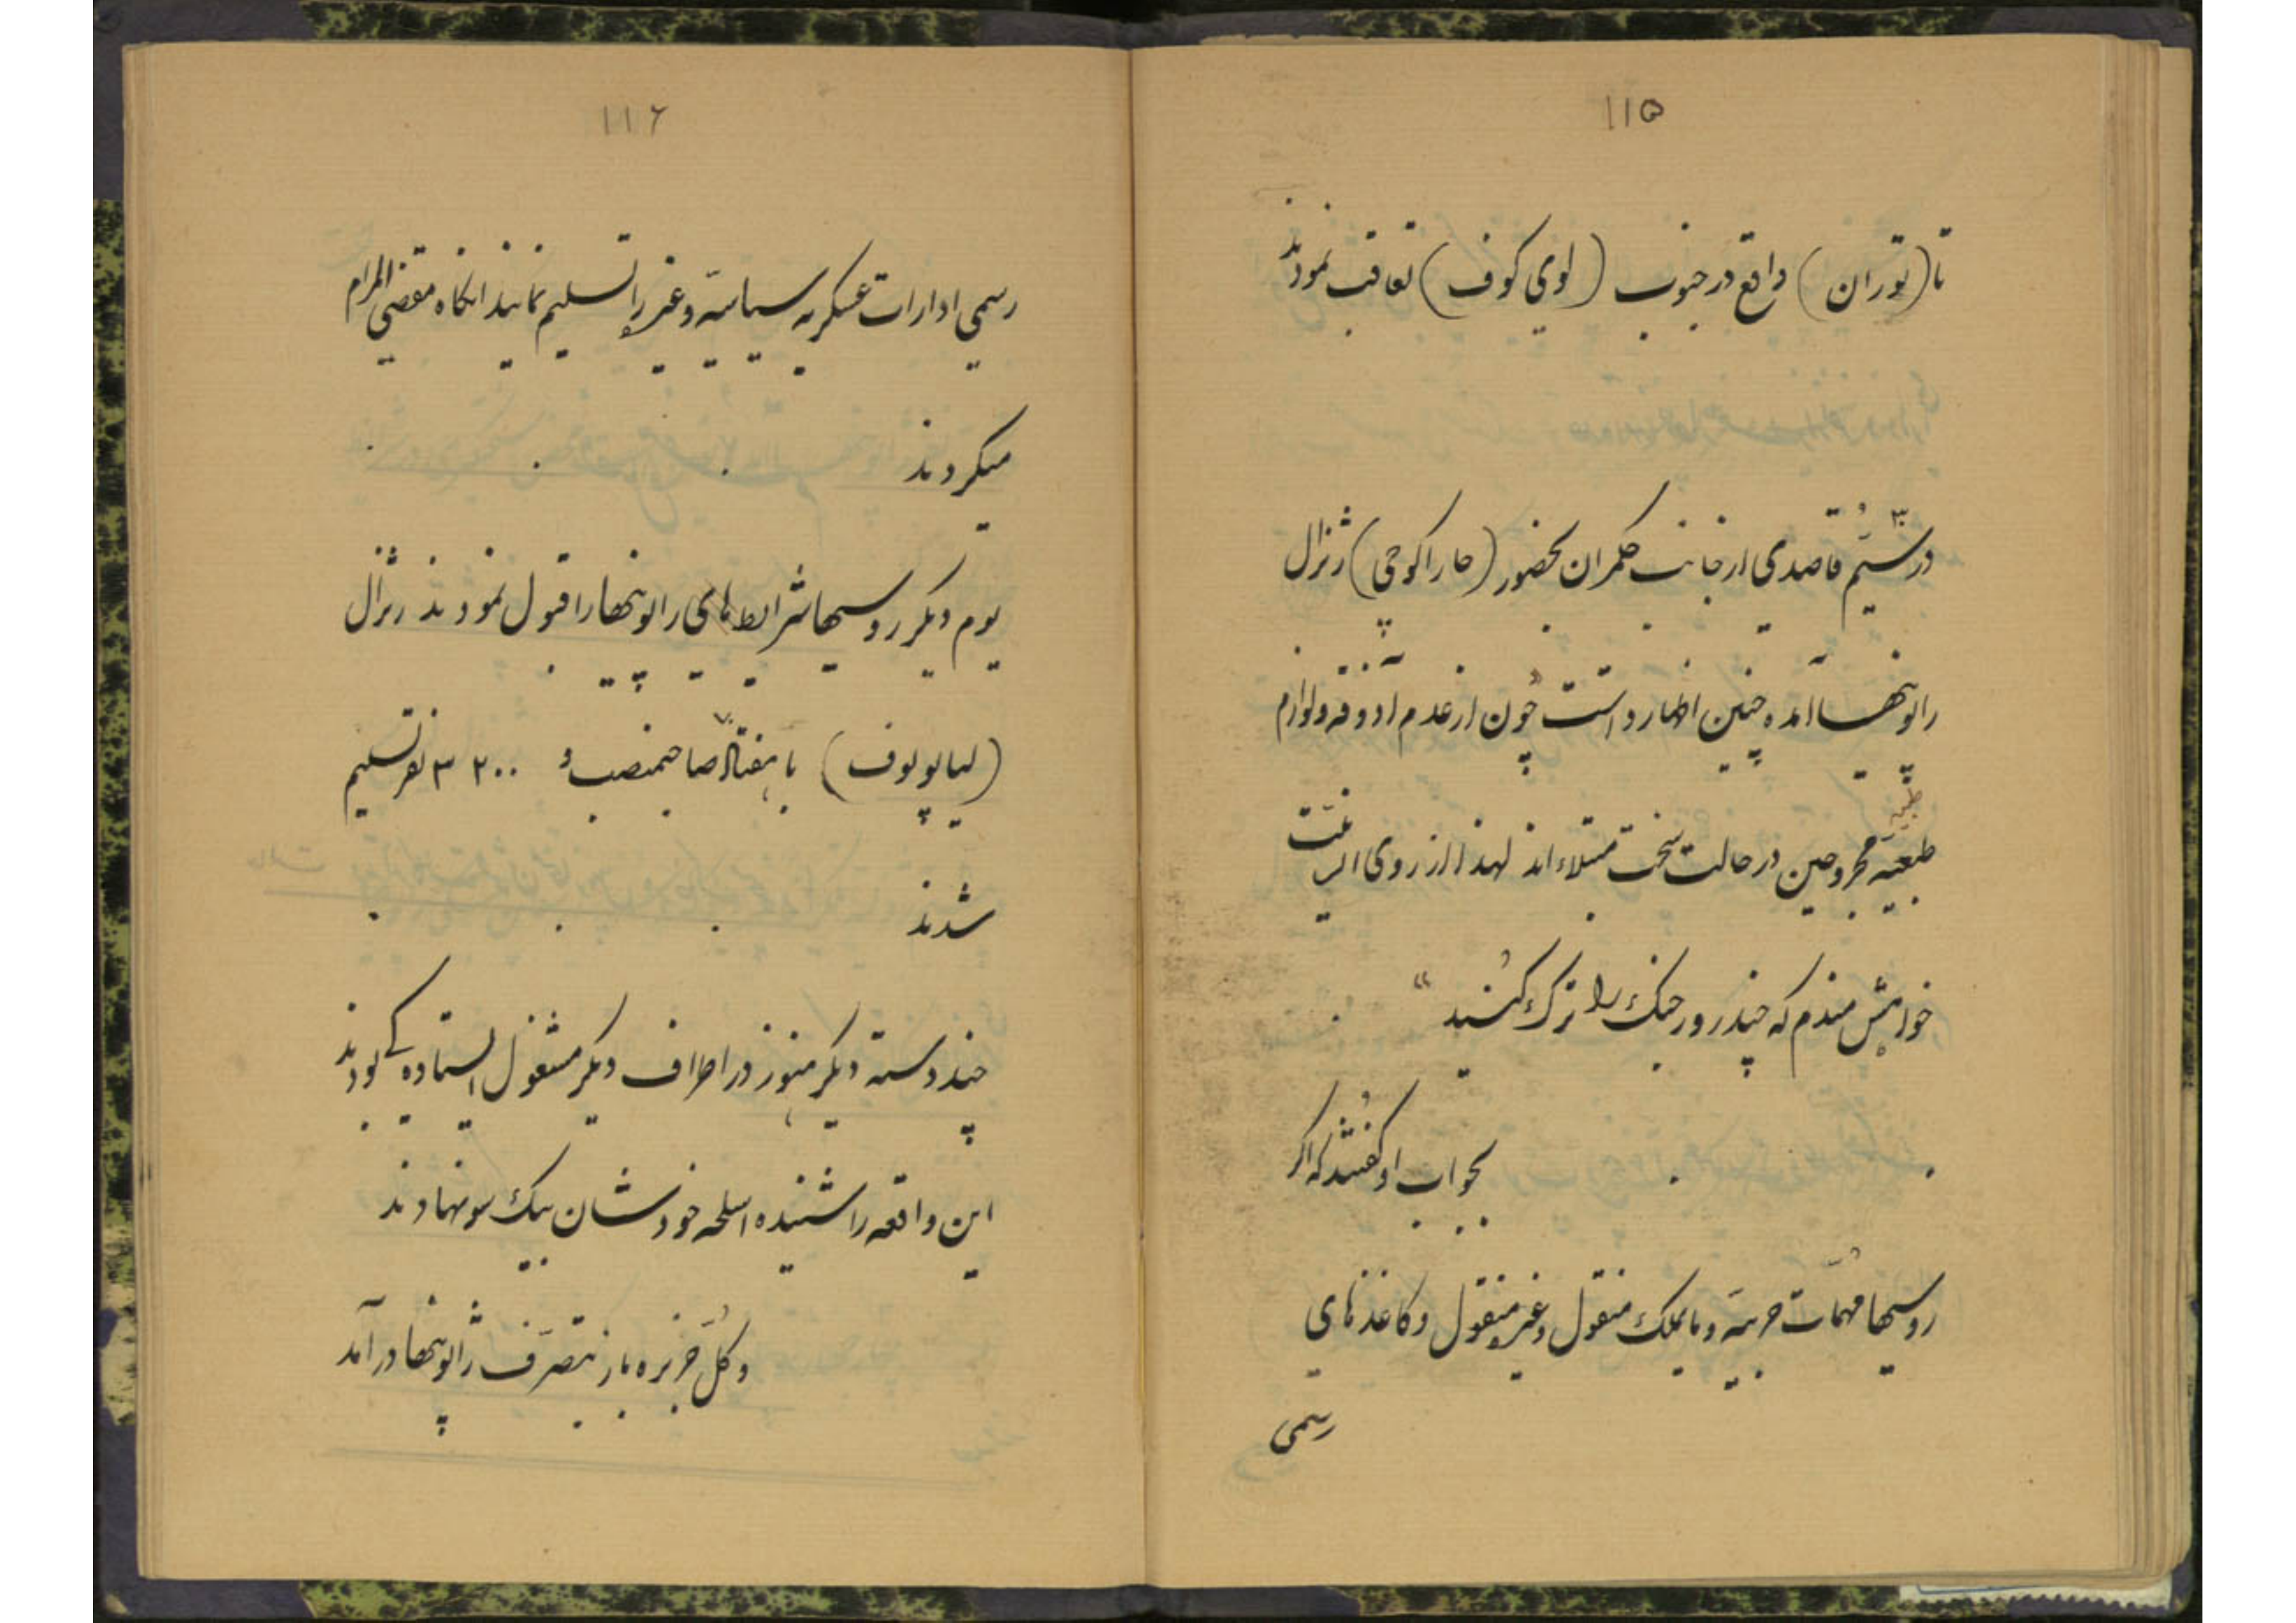 ۱۱۵
تا (توران) واقع در جنوب (لوی کوف) تعاقب نمودند
در سیّم قاصدی از جانب حکمران بحضور (حاراکوچی) ژنرال
ژاپونیها آمده چنین اظهار داشت چون از عدم آذوقه و لوازم
طبیه
طبعیّه مجروحین در حالت سخت مبتلاءاند لهذا از روی
خواهش مندم که چند روز جنک را ترک کنید"
بجواب او گفتند که اگر
روسیها مهمّات حربیّه و مایملک منقول و غیر منقول و کاغذهای
رسمی
۱۱۶
رسمی ادارات عسکریه سیاسیّه و غیره را تسلیم نمایند انکاه مقضی المرام
میکردند
یوم دیگر روسیها شرایط های ژاپونیها را قبول نمودند ژنرال
(لیاپونوف) با هفتاد صاحبمنصب و ۳۲۰۰ نفر تسلیم
شدند
چند دسته دیگر هنوز در اطراف دیگر مشغول ایستاده کی بودند
این واقعه را شنیده اسلحه خودشان بیک سو نهادند
و کلّ جزیره باز بتصرّف ژاپونیها در آمد